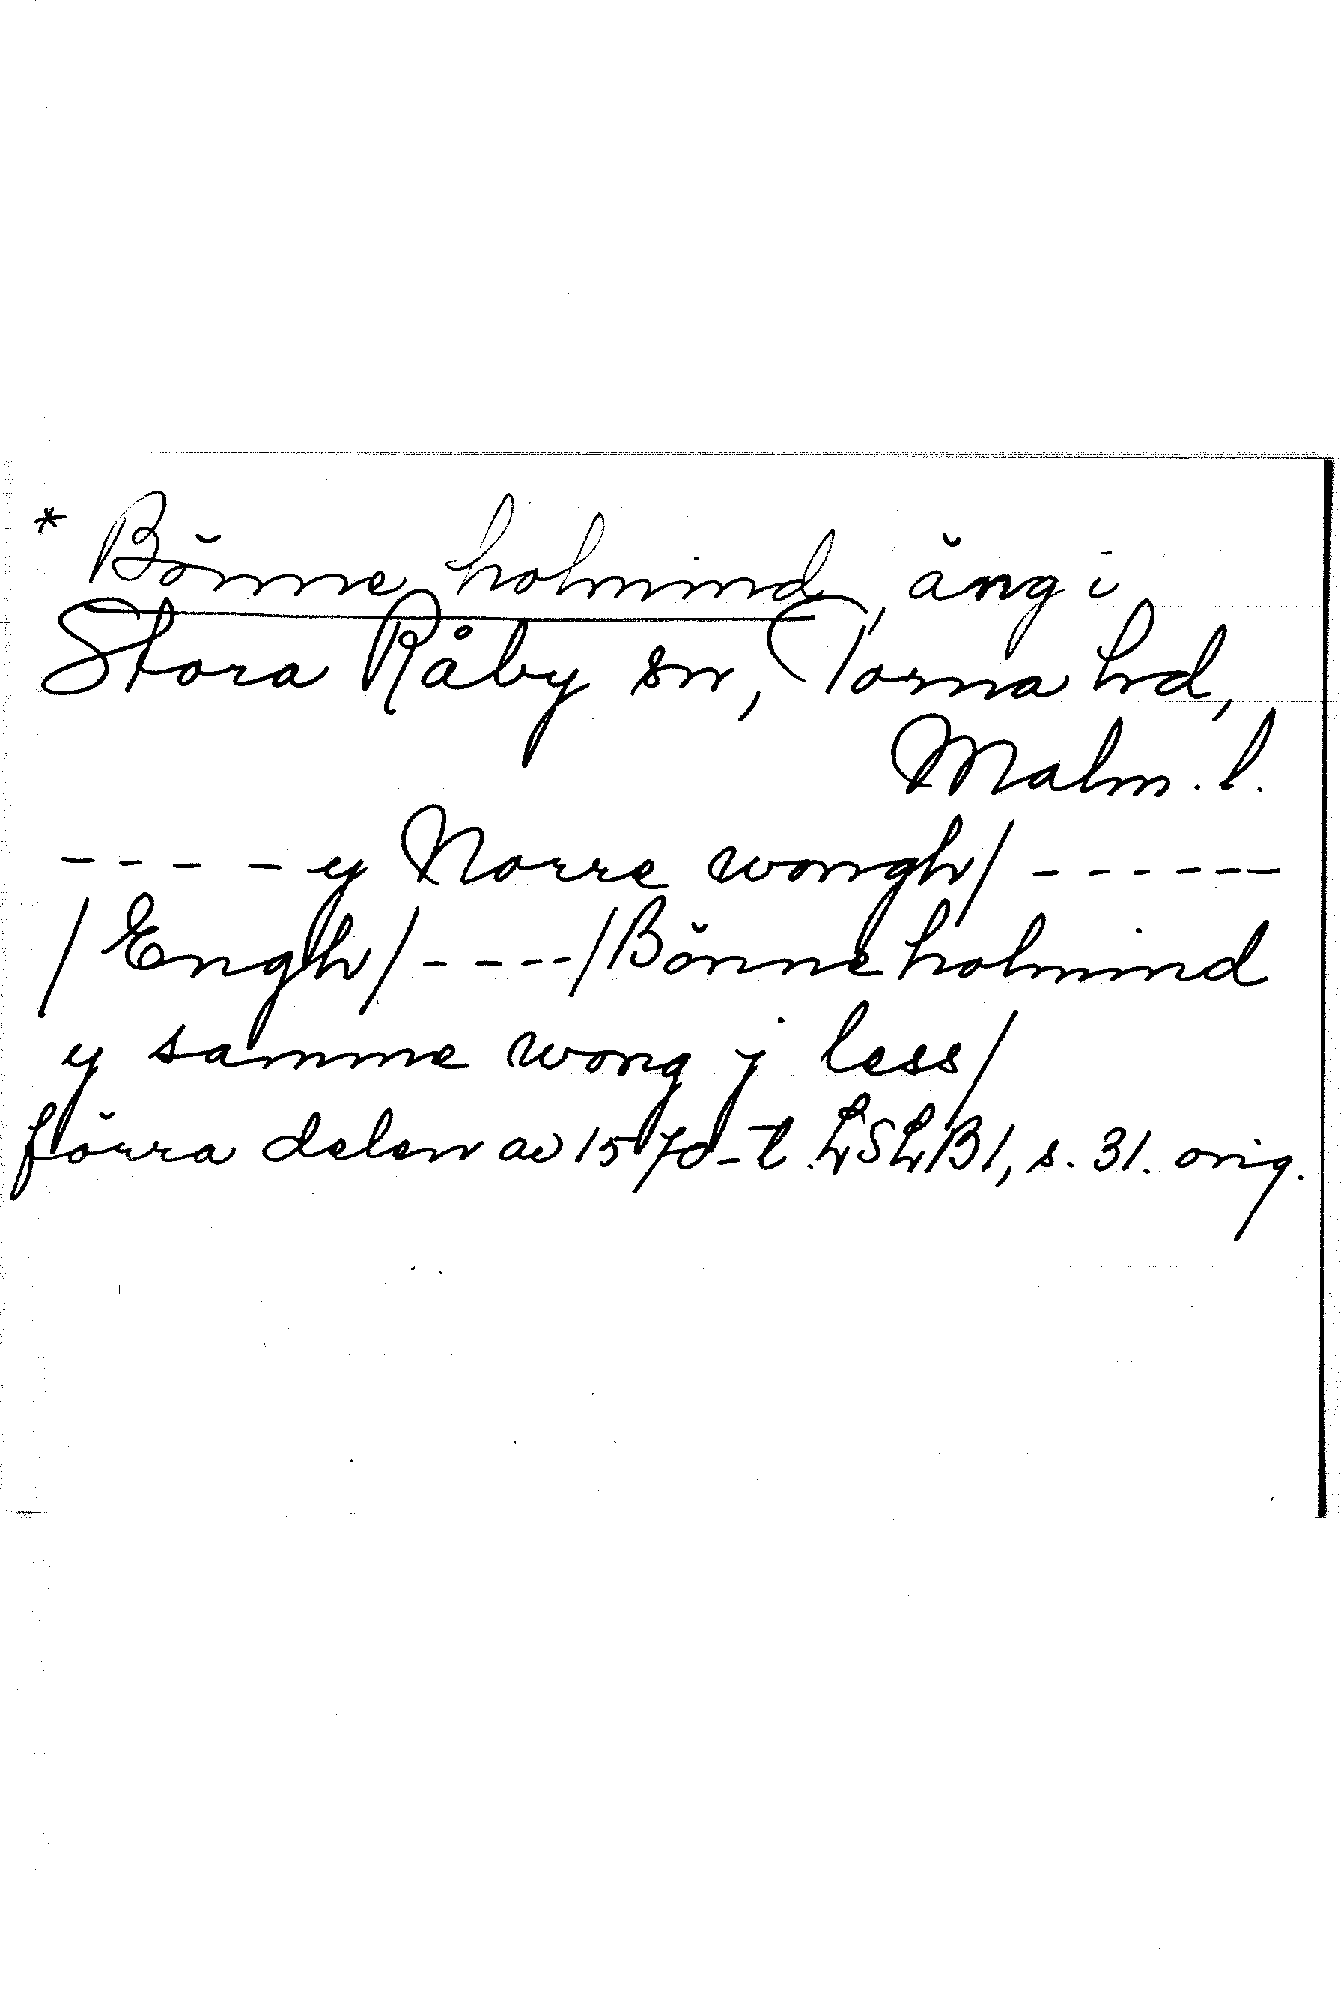 * Bönne holmind, äng i
Stora Råby sn, Torna hd,
Malm. l.
- - - - y Norre wongh/ - - - - - -
/Engh/ - - - - /Bönne holmind
y samme wong j less/
förra delen av 1570-t. LSLB1, s. 31. orig.